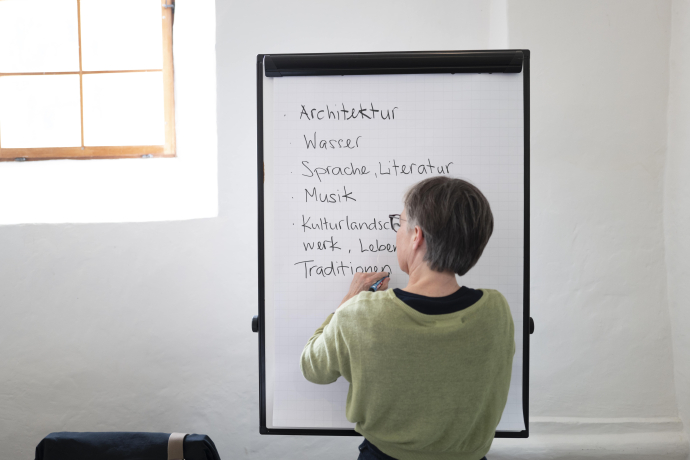 · Architektur
· Wasser
· Sprache, Literatur
· Musik
· Kulturlandsc
werk, Leben
Traditionen